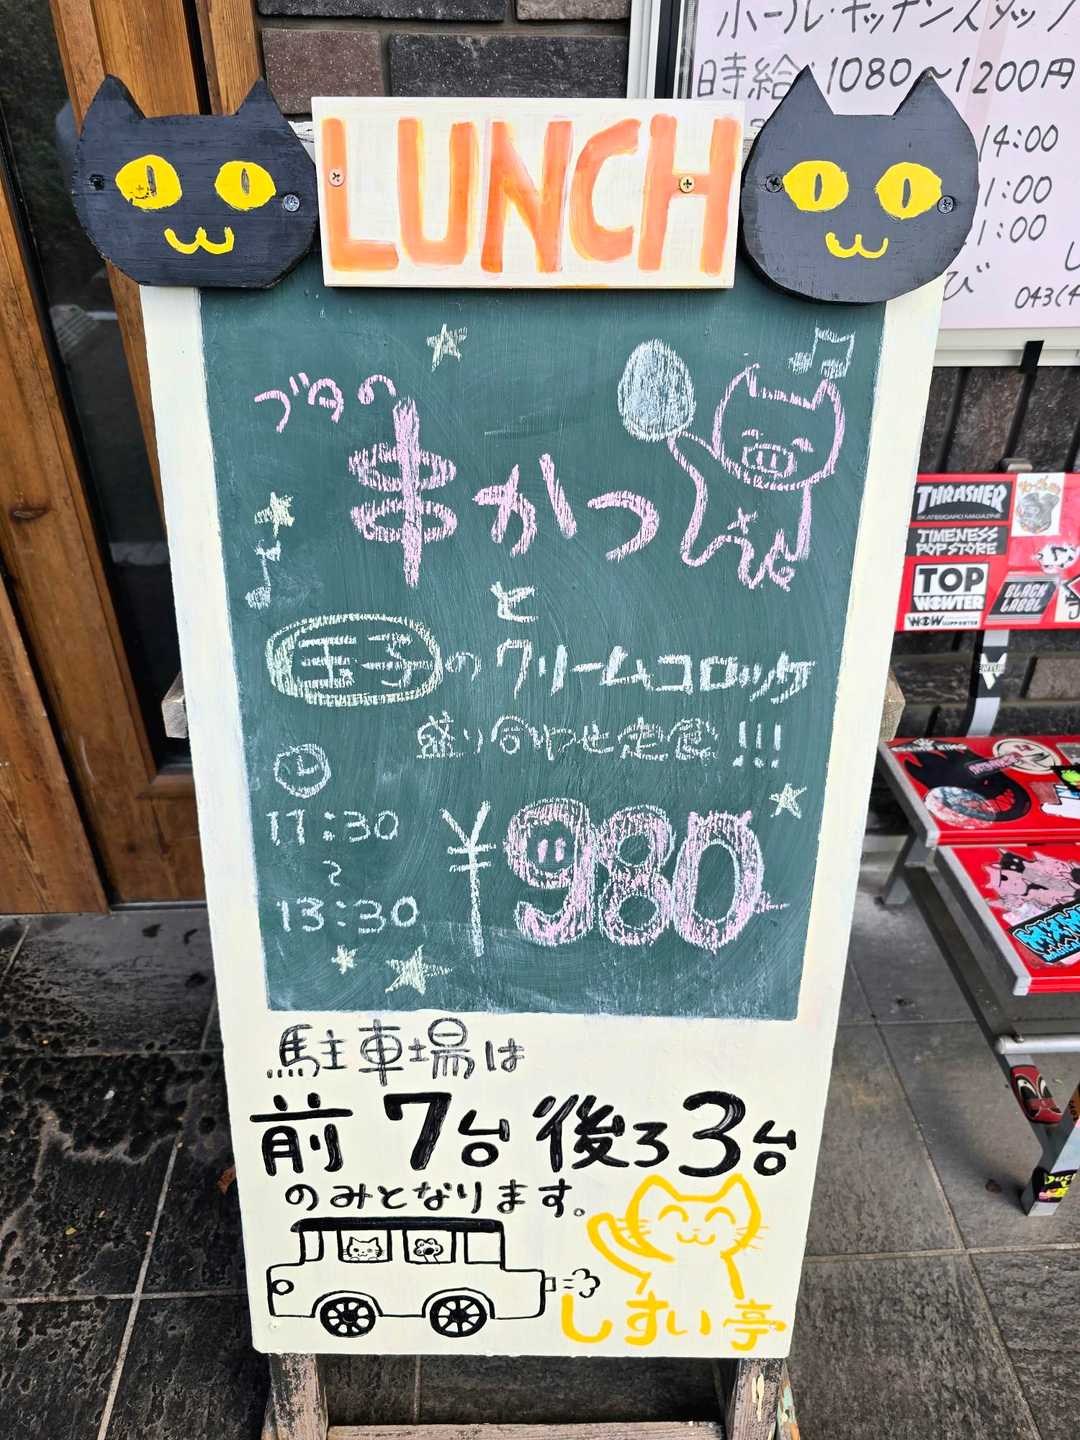 ホール・キッチンスタッフ
時給 1080〜1200円
14:00
1:00
1:00
び
043(4
LUNCH
ブタの
串かつ
と
玉子のクリームコロッケ
盛り合わせ定食!!!
11:30
〜
13:30
¥980
駐車場は
前7台後ろ3台
のみとなります。
しすい亭
THRASHER
SKATEBOARD MAGAZINE
TIMENESS
POP STORE
TOP
WOWTER
WOW SUPPORTER
BLACK
LABEL